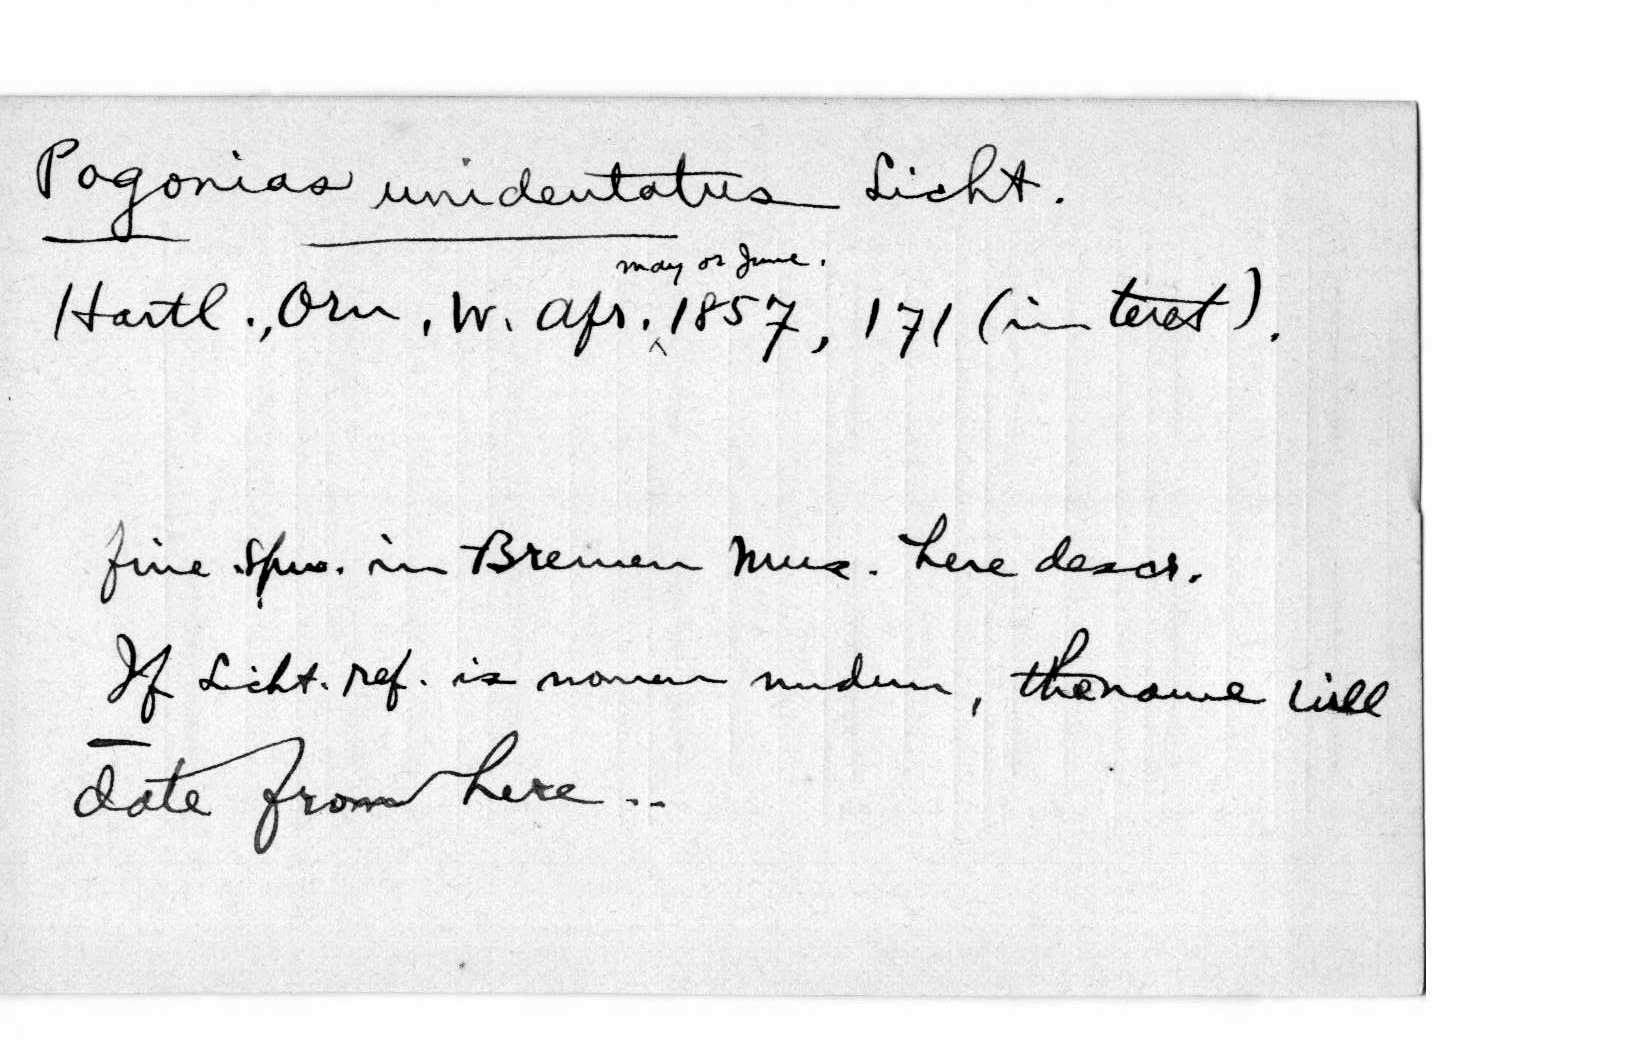 Pogonias unidentatus Licht.
may or June.
Hartl., Orn. W. Afr. 1857, 171 (in text).
fine spm. in Bremen Mus. here descr.
If Licht. ref. is nomen nudum, the name will
date from here ..